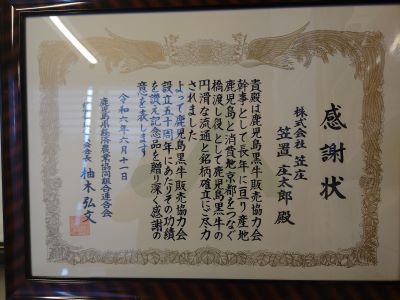 感謝状
株式会社 笠庄
笠置 庄太郎 殿
貴殿は鹿児島黒牛販売協力会
幹事として長年に亘り産地
鹿児島と消費地京都をつなぐ
橋渡し役として鹿児島黒牛の
円滑な流通と銘柄確立にご尽力
されました
よって鹿児島黒牛販売協力会
設立五十周年にあたりその功績
を讃え記念品を贈り深く感謝の
意を表します
令和六年六月十一日
鹿児島県経済農業協同組合連合会
柚木 弘文